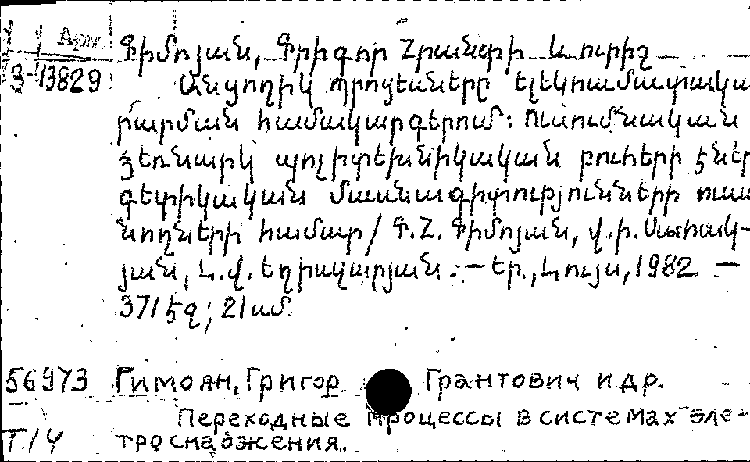 Арм
Գիմոյան, Գրիգոր Հրանտի և ուրիշ
3-13829
Անցողիկ պրոցեսները էլեկտրամատակա-
րարման համակարգերում: Ուսումնական
ձեռնարկ պոլիտեխնիկական բուհերի էներ-
գետիկական մասնագիտությունների ուսա-
նողների համար/ Գ.Հ. Գիմոյան, Վ.Ի. Սահակ-
յան, Ն.Վ. Եղիազարյան.- Եր., Լույս, 1982 -
371 էջ; 21 սմ.
56973 Гимоян, Григор Грантович и др.
Переходные процессы в системах эле-
Т/4 троснабжения.